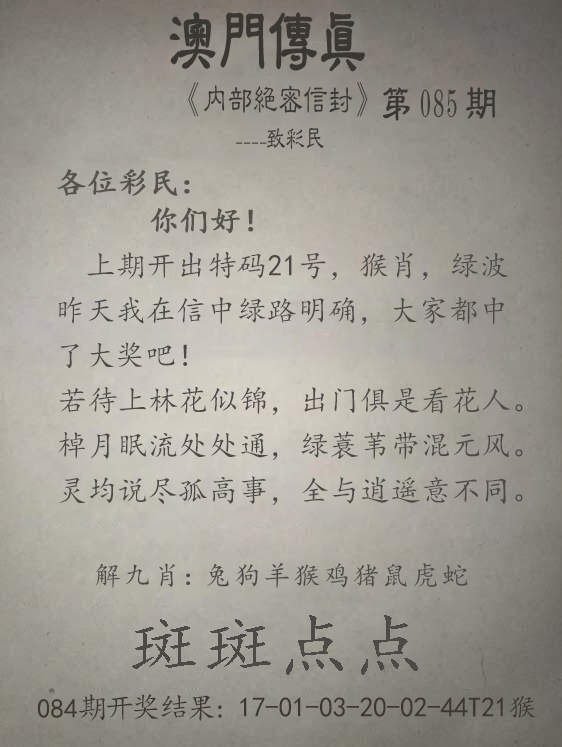 澳門傳眞
《内部絕密信封》第085期
----致彩民
各位彩民:
你们好!
上期开出特码21号，猴肖，绿波
昨天我在信中绿路明确，大家都中
了大奖吧!
若待上林花似锦，出门俱是看花人。
棹月眠流处处通，绿蓑苇带混元风。
灵均说尽孤高事，全与逍遥意不同。
解九肖:兔狗羊猴鸡猪鼠虎蛇
斑斑点点
084期开奖结果: 17-01-03-20-02-44T21猴